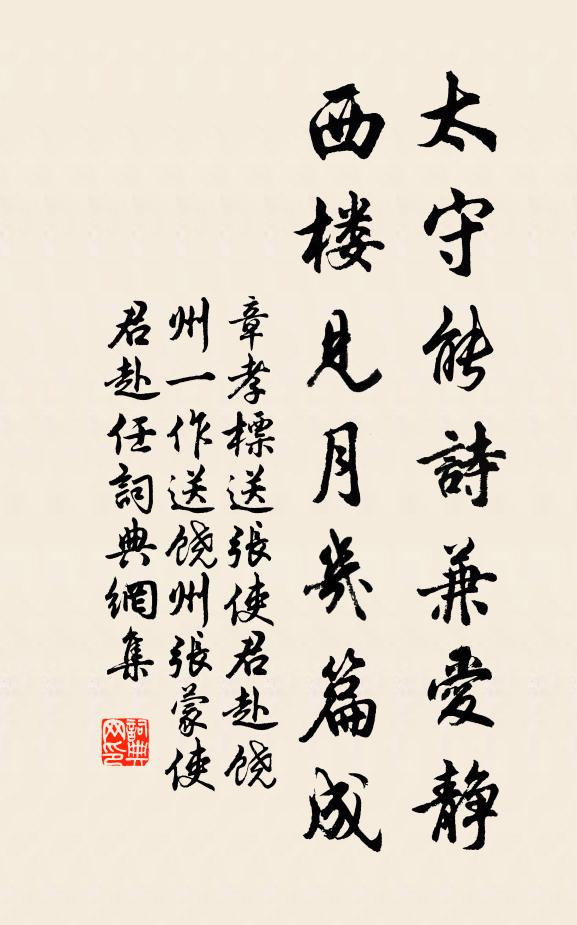 太守能詩兼愛静
西楼見月幾篇成
章孝標送張使君赴饶
州一作送饶州張蒙使
君赴任詞典網集
詞典
网印